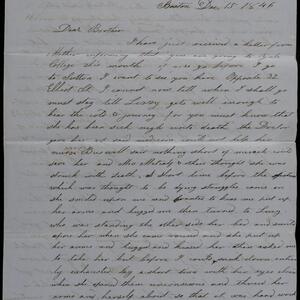 Boston Dec 15 1846
Dear Brother
I have just received a letter from
Mother informing that you are going to Yale
College this month if you do before I go
to Sutton I want to see you here Opposite 22
Elliot St. I cannot now tell when I shall go
must stay till Lucy gets well enough to
bear the cold & journey for you must know that
she has been sick nigh unto death the Doctor
gave her up said medicine could not help her
nurse said nothing short of miracle could
save her and Mrs & others thought she was
struck with death. A short time before the
which was thought to be dying struggles came on
she smiled upon me and to kiss me put up
her arms and hugged me then turned to
who was standing the other side her bed and smiled
upon her when she came round and she put up
her arms and hugged and kissed her then asked me
to take her but before I could sank down entirely
by exhausted lay a short time with her eyes closed
when she opened them and threw her
arms and herself about so that it was hard work